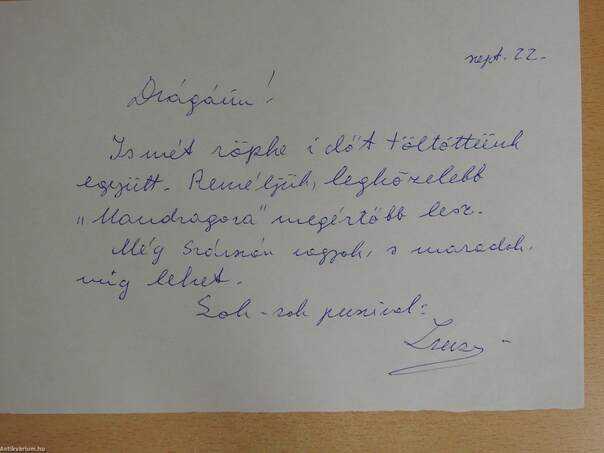 szept. 22.
Drágáim!
Ismét röpke időt töltöttünk
együtt. Reméljük, legközelebb
„Mandragora" megértőbb lesz.
Még Szárszón vagyok, s maradok,
míg lehet.
Sok-sok puszival:
Zsuzsa
Antikvárium.hu